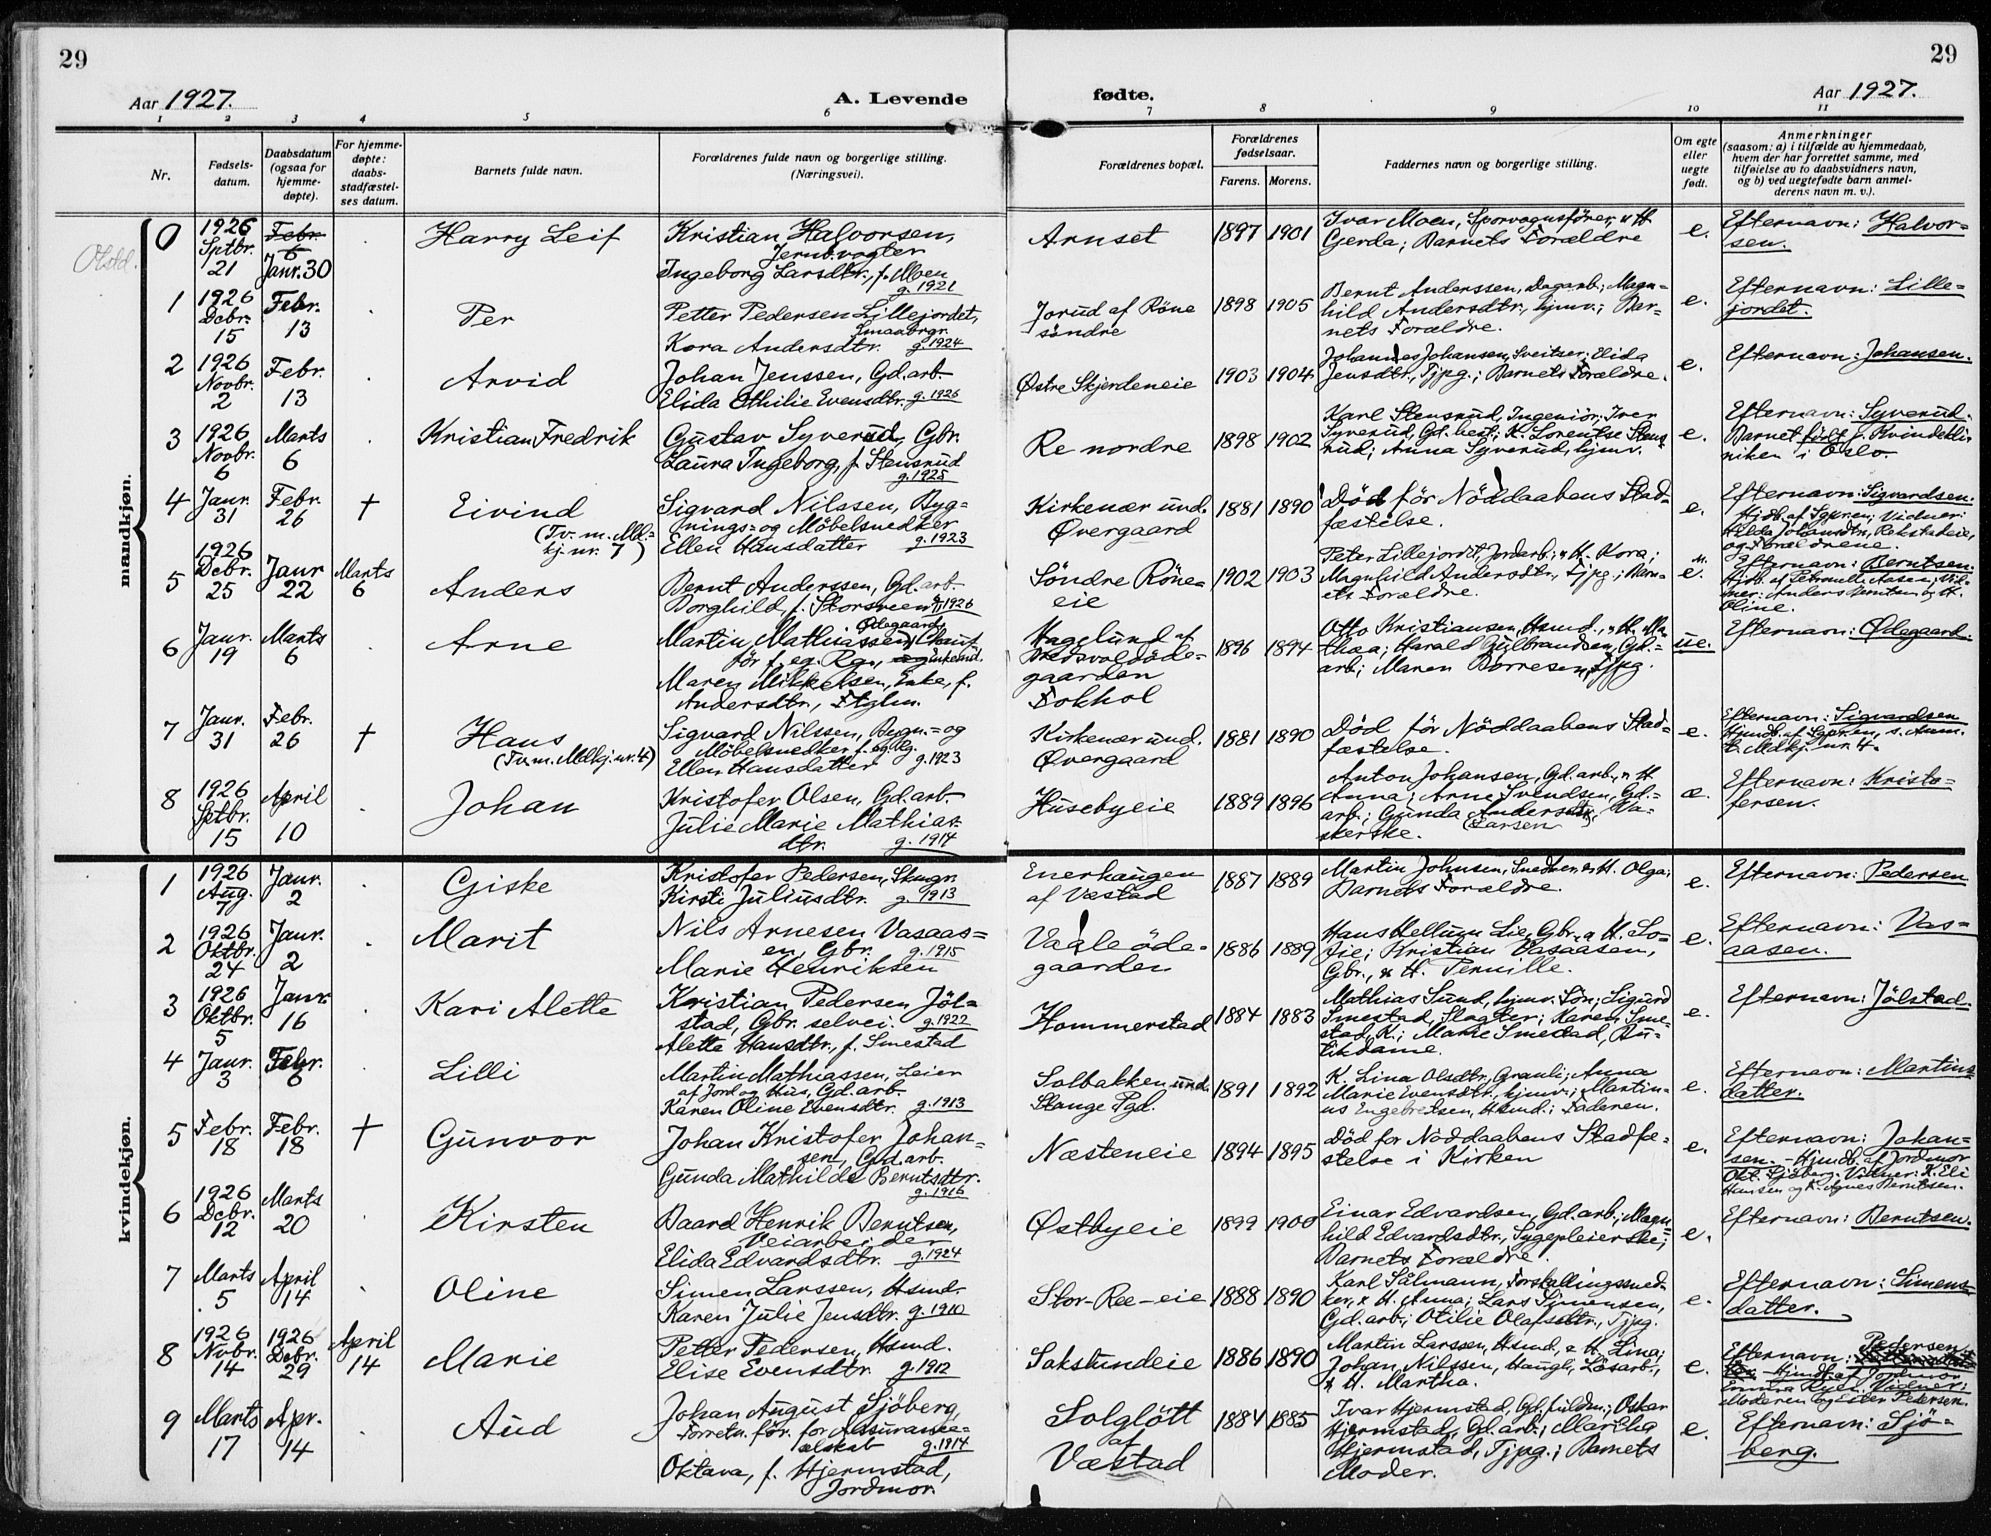 29
29
Aar 1927.
A. Levende
fødte.
Aar 1927.
1 2 3 4 5 6 7 8 9 10 11
Nr.
Fødsels-
datum.
Daabsdatum
(ogsaa for
hjemme-
døpte).
For hjemme-
døpte:
daabs-
stadfæstel-
ses datum.
Barnets fulde navn.
Forældrenes fulde navn og borgerlige stilling.
(Næringsvei).
Forældrenes bopæl.
Forældrenes
fødselsaar.
Farens. Morens.
Faddernes navn og borgerlige stilling.
Om egte
eller
uegte
født.
Anmerkninger
(saasom: a) i tilfælde av hjemmedaab,
hvem der har forrettet samme, med
tilføielse av to daabsvidners navn,
og b) ved uegtefødte barn anmel-
derens navn m. v.).
mandkjøn.
0
1926
Sptbr.
21
Febr.
6
Janr. 30
Harry Leif
Kristian Halvorsen,
Jernb.vogter
Ingeborg Larsdtr., f. Moen
g. 1921
Arnset
1897 1901
Ivar Moen, Sporvognsfører, & H.
Gerda; Barnets Forældre
e.
Efternavn: Halvor-
sen.
1
1926
Dcbr.
15
Febr.
13
Per
Petter Pedersen Lillejordet,
Smaabrgr.
Kora Andersdtr. g. 1924
Jorud af Röne
söndre
1898 1905
Bernt Anderssen, Dagarb.; Magn-
hild Andersdtr., hjmv.; Bar-
nets Forældre.
e.
Efternavn: Lille-
jordet.
2
1926
Novbr.
2
Febr.
13
Arvid
Johan Jenssen, Gd.arb.
Elida Othilie Evensdtr. g. 1926
Østre Skjerdeneie
1903 1904
Johannes Johansen, Sveitser; Elida
Jensdtr., Tjpg.; Barnets Forældre.
e.
Efternavn: Johansen.
3
1926
Novbr.
6
Marts
6
Kristian Fredrik
Gustav Syverud, Gbr.
Laura Ingeborg, f. Stensrud
g. 1925
Re nordre
1898 1902
Karl Stensrud, Ingeniör; Iver
Syverud, Gd.best.; K. Lorentse Stens-
rud; Anna Syverud, hjmv.
e.
Efternavn: Syverud.
Barnet født p. Kvindekli-
niken i Oslo.
4
Janr.
31
Febr.
26
†
Eivind
(Tv. m. Md.-
kj. nr. 7)
Sigvard Nilssen, Byg-
nings- og Möbelsnedker
Ellen Hansdatter g. 1923
Kirkenær und.
Øvergaard
1881 1890
Död för Nöddaabens Stad-
fæstelse.
e.
Efternavn: Sigvardsen.
Hjdb. af Sgpr.en; Vidner:
Hilda Johansdtr., Rekstadeie,
og Forældrene.
5
1926
Dcbr.
25
Janr
22
Marts
6
Anders
Bernt Anderssen, Gd.arb.
Borghild, f. Storsveen 1926
Söndre Röne-
eie
1902 1903
Peter Lillejordet, Jordarb.; & H. Kora;
Magnhild Andersdtr., Tjpg.; Barn-
ets Forældre.
e.
Efternavn: Berntsen.
6
Janr.
19
Marts
6
Arne
Martin Mathiassen Ødegaard,
Maren Mikkelsen, Enke, f.
Andersdtr.,
Hagelund af
gaarden
Fokhol
1896 1894
Otto Kristiansen, Hsmd., & H. Ma-
thea; Harald Gulbrandsen, Gd.-
arb.; Maren Borresen, Tjpg.
ue.
Efternavn: Ødegaard.
7
Janr.
31
Febr.
26
†
Hans
(Tv. m. Mdkj. nr. 4)
Sigvard Nilssen, Bygn.- og
Möbelsnedker f. eg. Rg.
Ellen Hansdatter g. 1923
Kirkenær und.
Øvergaard
1881 1890
Död för Nöddaabens Stad-
fæstelse.
e.
Efternavn: Sigvardsen
Hjmdb. af Sgpr.en, s. Anm.
t. Mdkj. nr. 4.
8
1926
Sptbr.
15
April
10
Johan
Kristofer Olsen, Gd.arb.
Julie Marie Mathias-
dtr. g. 1914
Husebyeie
1889 1896
Anton Johansen, Gd.arb., & H.
Anna; Arne Svendsen, Gd.-
arb.; Gunda Andersdtr., Va-
(Larsen)
skerske.
æ.
Efternavn: Kristo-
fersen.
kvindekjøn.
1
1926
Aug.
7
Janr.
2
Giske
Kristofer Pedersen, Skogr.
Kirsti Juliusdtr. g. 1913
Enerhaugen
af Væstad
1887 1889
Martin Johnsen, Snedker, & H. Olga;
Barnets Forældre.
e.
Efternavn: Pedersen
2
1926
Oktbr.
24
Janr.
2
Marit
Nils Arnesen Vasaas-
en, Gbr. g. 1915
Marie Henriksen
Vaaleöde-
gaarden
1886 1889
Hans Hellum Lie, Gbr., & H. So-
fie; Kristian Vasaasen,
Gbr., & H. Pernille.
e.
Efternavn: Vas-
aasen.
3
1926
Oktbr.
5
Janr.
16
Kari Alette
Kristian Pedersen Jöl-
stad, Gbr. selvei. g. 1922
Alette Hansdtr., f. Smestad
Hommerstad
1884 1883
Mathias Sund, hjmv. Sön; Sigurd
Smestad, Slagter; Karen Sme-
stad, K.; Marie Smestad, Bu-
tikdame.
e.
Efternavn: Jölstad.
4
Janr.
3
Febr.
6
Lilli
Martin Mathiassen, Leier
af Jord og Hus, Gd.arb.
Karen Oline Evensdtr. g. 1913
Solbakken und.
Stange Pgd.
1891 1892
K. Lina Olsdtr., Granli; Anna
Marie Evensdtr., hjmv.; Martin-
us Engebretsen, Hsmd.; Faderen.
e.
Efternavn: Martins-
datter.
5
Febr.
18
Febr.
18
†
Gunvor
Johan Kristofer Johan-
sen, Gd.arb.
Gunda Mathilde Berntsdtr.
g. 1916
Næsteneie
1894 1895
Död for Nöddaabens Stadfæ-
stelse i Kirken
e.
Efternavn: Johan-
sen. – Hjmdb. af Jordmor
Okt. Sjöberg. Vidner: K. Eli
Hansen og K. Agnes Berntsen.
6
1926
Dcbr.
12
Marts
20
Kirsten
Baard Henrik Berntsen,
Veiarbeider
Elida Edvardsdtr. g. 1924
Østbyeie
1899 1900
Einar Edvardsen, Gd.arb.; Magn-
hild Edvardsdtr., Sygepleierske;
Barnets Forældre.
e.
Efternavn: Berntsen.
7
Marts
5
April
14
Oline
Simen Larssen, Hsmd.
Karen Julie Jensdtr. g. 1910
Stor-Ree-eie
1888 1890
Karl Sålmann, Forskallingssned-
ker, & H. Anna; Lars Simensen,
Gd.arb.; Otilie Olafsdtr., Tjpg.
e.
Efternavn: Simens-
datter.
8
1926
Novbr.
14
1926
Dcbr.
29
April
14
Marie
Petter Pedersen, Hsmd.
Elise Evensdtr. g. 1912
Sakstundeie
1886 1890
Martin Larssen, Hsmd., & H. Lina;
Johan Nilssen, Haugli, Lösarb.,
& H. Martha.
e.
Efternavn: Pedersen
Hjmdb. af Jordmor
Vidner:
Moderen og Ester Pedersen.
9
Marts
17
Apr.
14
Aud
Johan August Sjöberg,
Forretn.för. for Assurance-
selskab g. 1914
Oktava, f. Hjermstad,
Jordmor.
Solglött
af
Væstad
1884 1885
Ivar Hjermstad, Gd.fuldm.; Oskar
Hjermstad, Gd.arb.; Mar
Hjermstad, Tjpg.; Barnets
Moder.
e.
Efternavn: Sjö-
berg.